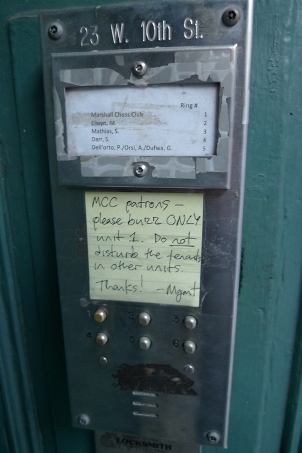 23 W. 10th St.
Ring #
Marshall Chess Club 1
Elwyn, M. 2
Mathias, S. 3
Darr, S. 4
Dell'orto, P./Orsi, A./Dafwa. G. 5
MCC patrons —
please buzz ONLY
unit 1. Do not
disturb the tenants
in other units.
Thanks! -Mgmt
1 2 3
4 5 6
LOCKSMITH